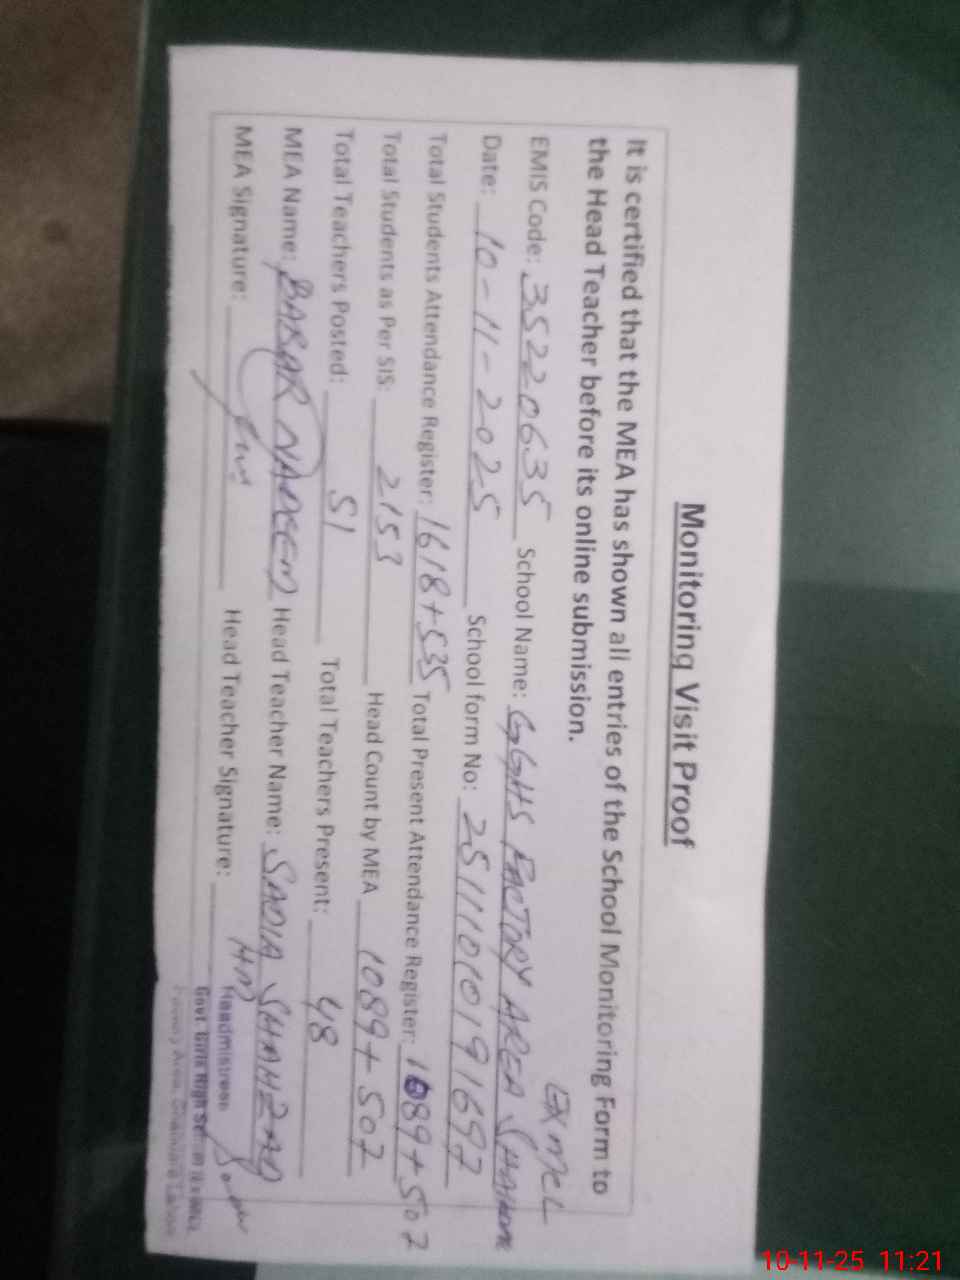 Monitoring Visit Proof
It is certified that the MEA has shown all entries of the School Monitoring Form to
the Head Teacher before its online submission.
EX MCL
EMIS Code: 35220635 School Name: GGHS FACTORY AREA
Date: 10-11-2025 School form No: 25111010191697
Total Students Attendance Register: 1618+535 Total Present Attendance Register: 1089+507
Total Students as Per SIS: 2153 Head Count by MEA 1089+507
Total Teachers Posted: 51 Total Teachers Present: 48
MEA Name: BABAR NADEEM Head Teacher Name: SADIA SHAHZAD
MEA Signature: Head Teacher Signature:
Headmistress
Govt. Girls High School
10-11-25 11:21